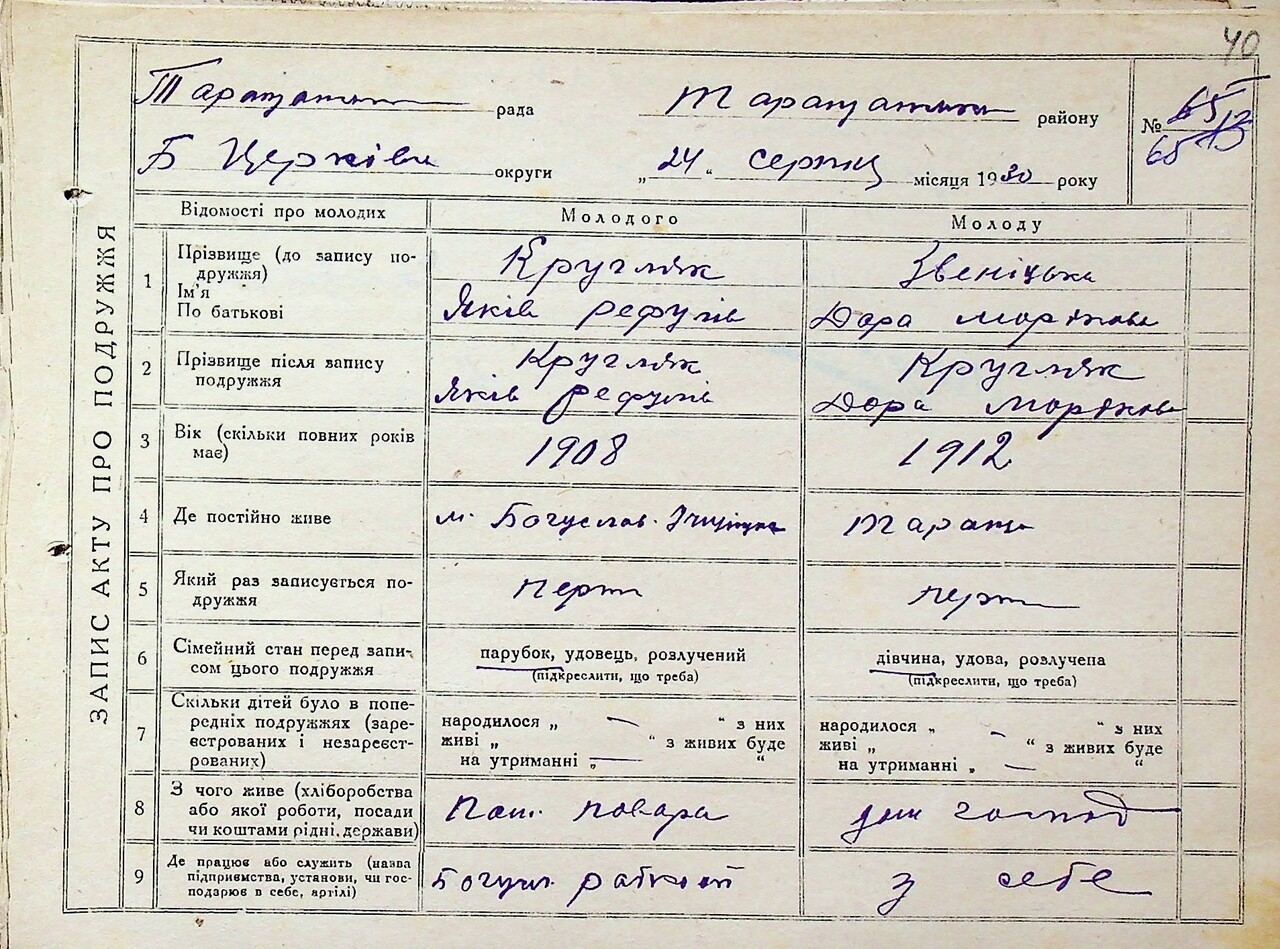 40
Таращанськ рада Таращанськ району № 65/13
65
Б Церківки округи „24“ серпня місяця 1930 року
ЗАПИС АКТУ ПРО ПОДРУЖЖЯ
Відомості про молодих Молодого Молоду
1 Прізвище (до запису по-
дружжя)
Ім'я
По батькові
Кругляк
Яків
Звеніцька
Дора
2 Прізвище після запису
подружжя
Кругляк
Яків
Кругляк
Дора
3 Вік (скільки повних років
має)
1908 1912
4 Де постійно живе м. Богуслав. Тараща
5 Який раз записується по-
дружжя
перш перш
6 Сімейний стан перед запи-
сом цього подружжя
парубок, удовець, розлучений
(підкреслити, що треба)
дівчина, удова, розлучена
(підкреслити, що треба)
7 Скільки дітей було в попе-
редніх подружжях (заре-
єстрованих і незареєст-
рованих)
народилося „ — “ з них
живі „ “ з живих буде
на утриманні „ — “
народилося „ — “ з них
живі „ “ з живих буде
на утриманні „ — “
8 З чого живе (хліборобства
або якої роботи, посади
чи коштами рідні, держави)
Пом. повара
дом господ
9 Де працює або служить (назва
підприємства, установи, чи гос-
подарює в себе, артілі)
Богусл.
з себе